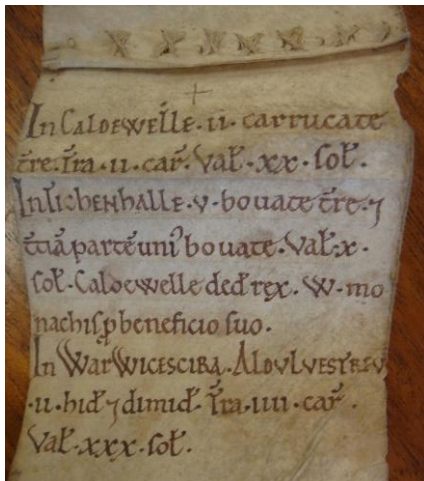 In Caldewelle·ii·carrucate
t̄re. T̄ra·ii·car̄. Val̄·xx·sol̄.
In Tichenhalle·v·bovate t̄re·⁊
t̄ciā partē uni᾿ bovate. Val̄·x·
sol̄. Caldewelle ded̄ rex. W. mo
nachis ꝓ beneficio suo.
In Warwicescira. Aldulvestreu
·ii·hid̄ ⁊ dimid̄. T̄ra·iiii·car̄.
Val̄·xxx·sol̄.